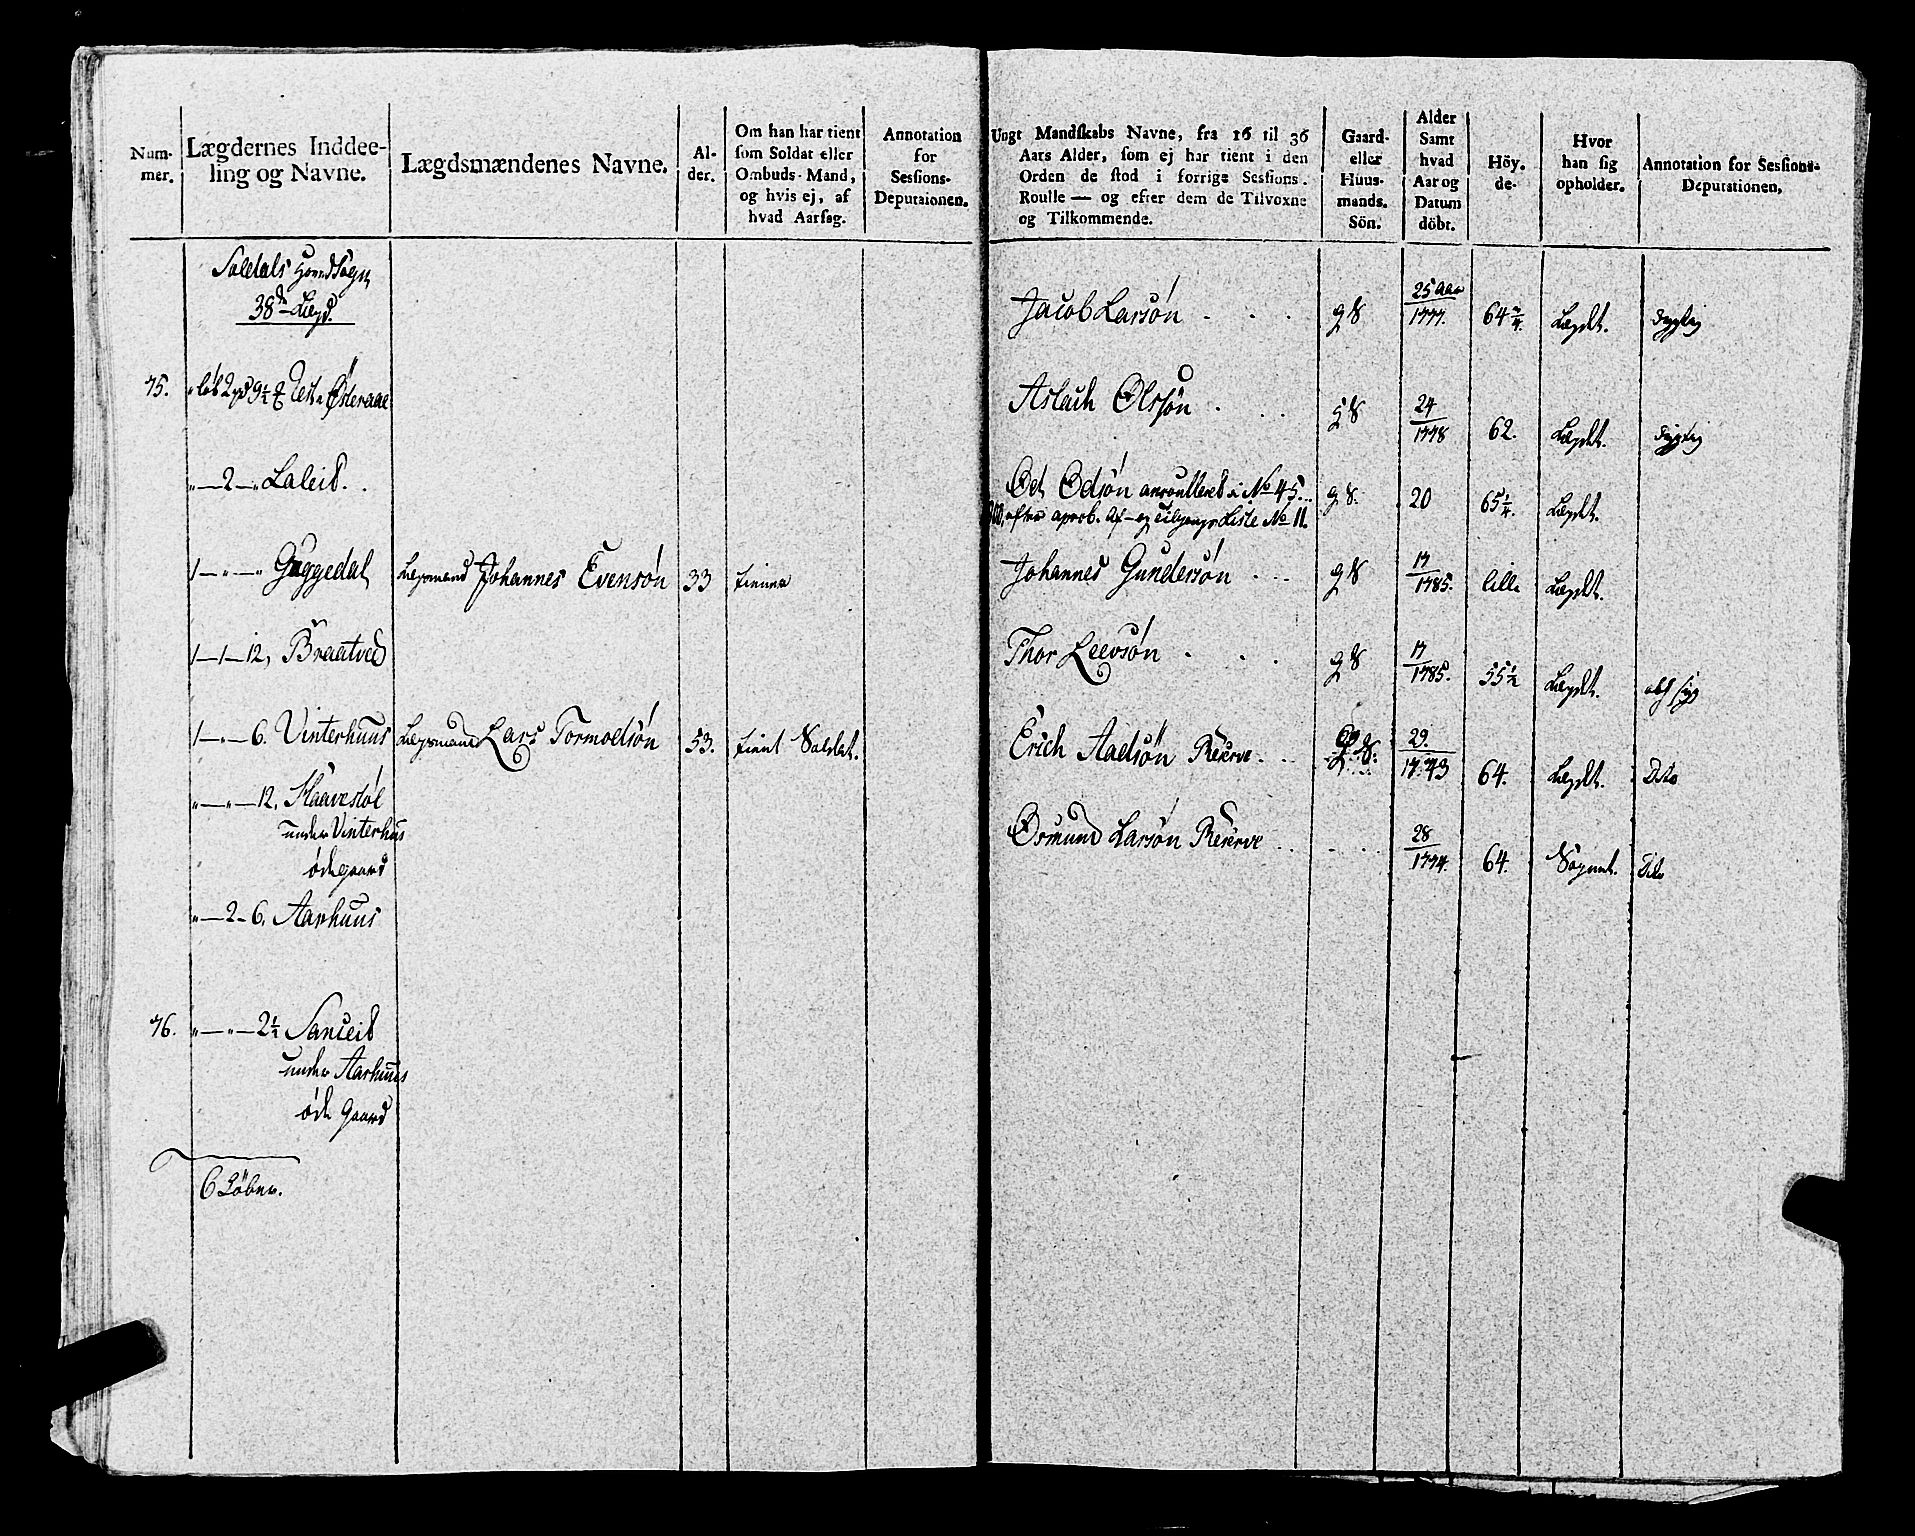 Num-
mer.
Lægdernes Inddee-
ling og Navne.
Lægdsmændenes Navne.
Al-
der.
Om han har tient
som Soldat eller
Ombuds-Mand,
og hvis ej, af
hvad Aarsag.
Annotation
for
Sessions-
Deputaionen.
Suledals HovedSogn
38de Lægd.
75.
Østeraae
"—2—" Laleid.
1—"—" Guggedal Lægsmand Johannes Evensøn 33 tienne
1—1—12, Braatved
1—"—6. Vinterhuus Lægsmand Lars Tormodsøn 53. tient Soldat.
"—"—12, Haavestøl
under Vinterhus
øde gaard
"—2—6. Aarhuus
76. "—"—2½ Sanceid
under Aarhuus
øde Gaard
6 Løber.
Ungt Mandskabs Navne, fra 16 til 36
Aars Alder, som ej har tient i den
Orden de stod i forrige Sessions-
Roulle — og efter dem de Tilvoxne
og Tilkommende.
Gaard-
eller
Huus-
mands-
Sön.
Alder
Samt
hvad
Aar og
Datum
döbt.
Höy-
de-
Hvor
han sig
opholder.
Annotation for Sessions-
Deputationen,
Jacob Larsøn . . . g S 25 Aar 1777. 64 Lægdet. dygtig
Aslach Olssøn . . . g S 24 1778 62. Lægdet. dygtig
Od Odsøn anroulleret i No 45. g S. 20 65¼. Lægdet.
efter aprob. Af- og Tilgangs Liste No 11.
Johannes Gundersøn . . . g S 17 1785. lille Lægdet.
Thor Leevsøn . . . g S 17 1785. 55½ Lægdet. syg
Erich Aadsøn Reserve . . . S. 29. 1773 64. Lægdet. Dito
Osmund Larsøn Reserve . . 28 1774. 64. Sognet. Dito